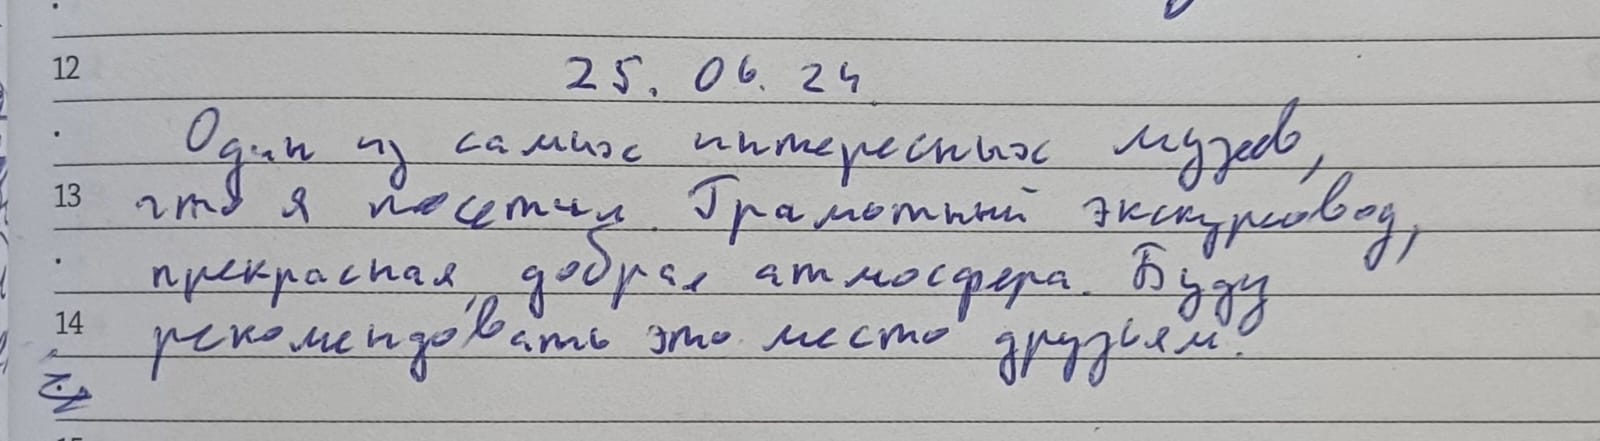 12 25.06.24
Один из самых интересных музеев,
13 что я посетил. Грамотный экскурсовод,
прекрасная, добрая атмосфера. Буду
14 рекомендовать это место друзьям.